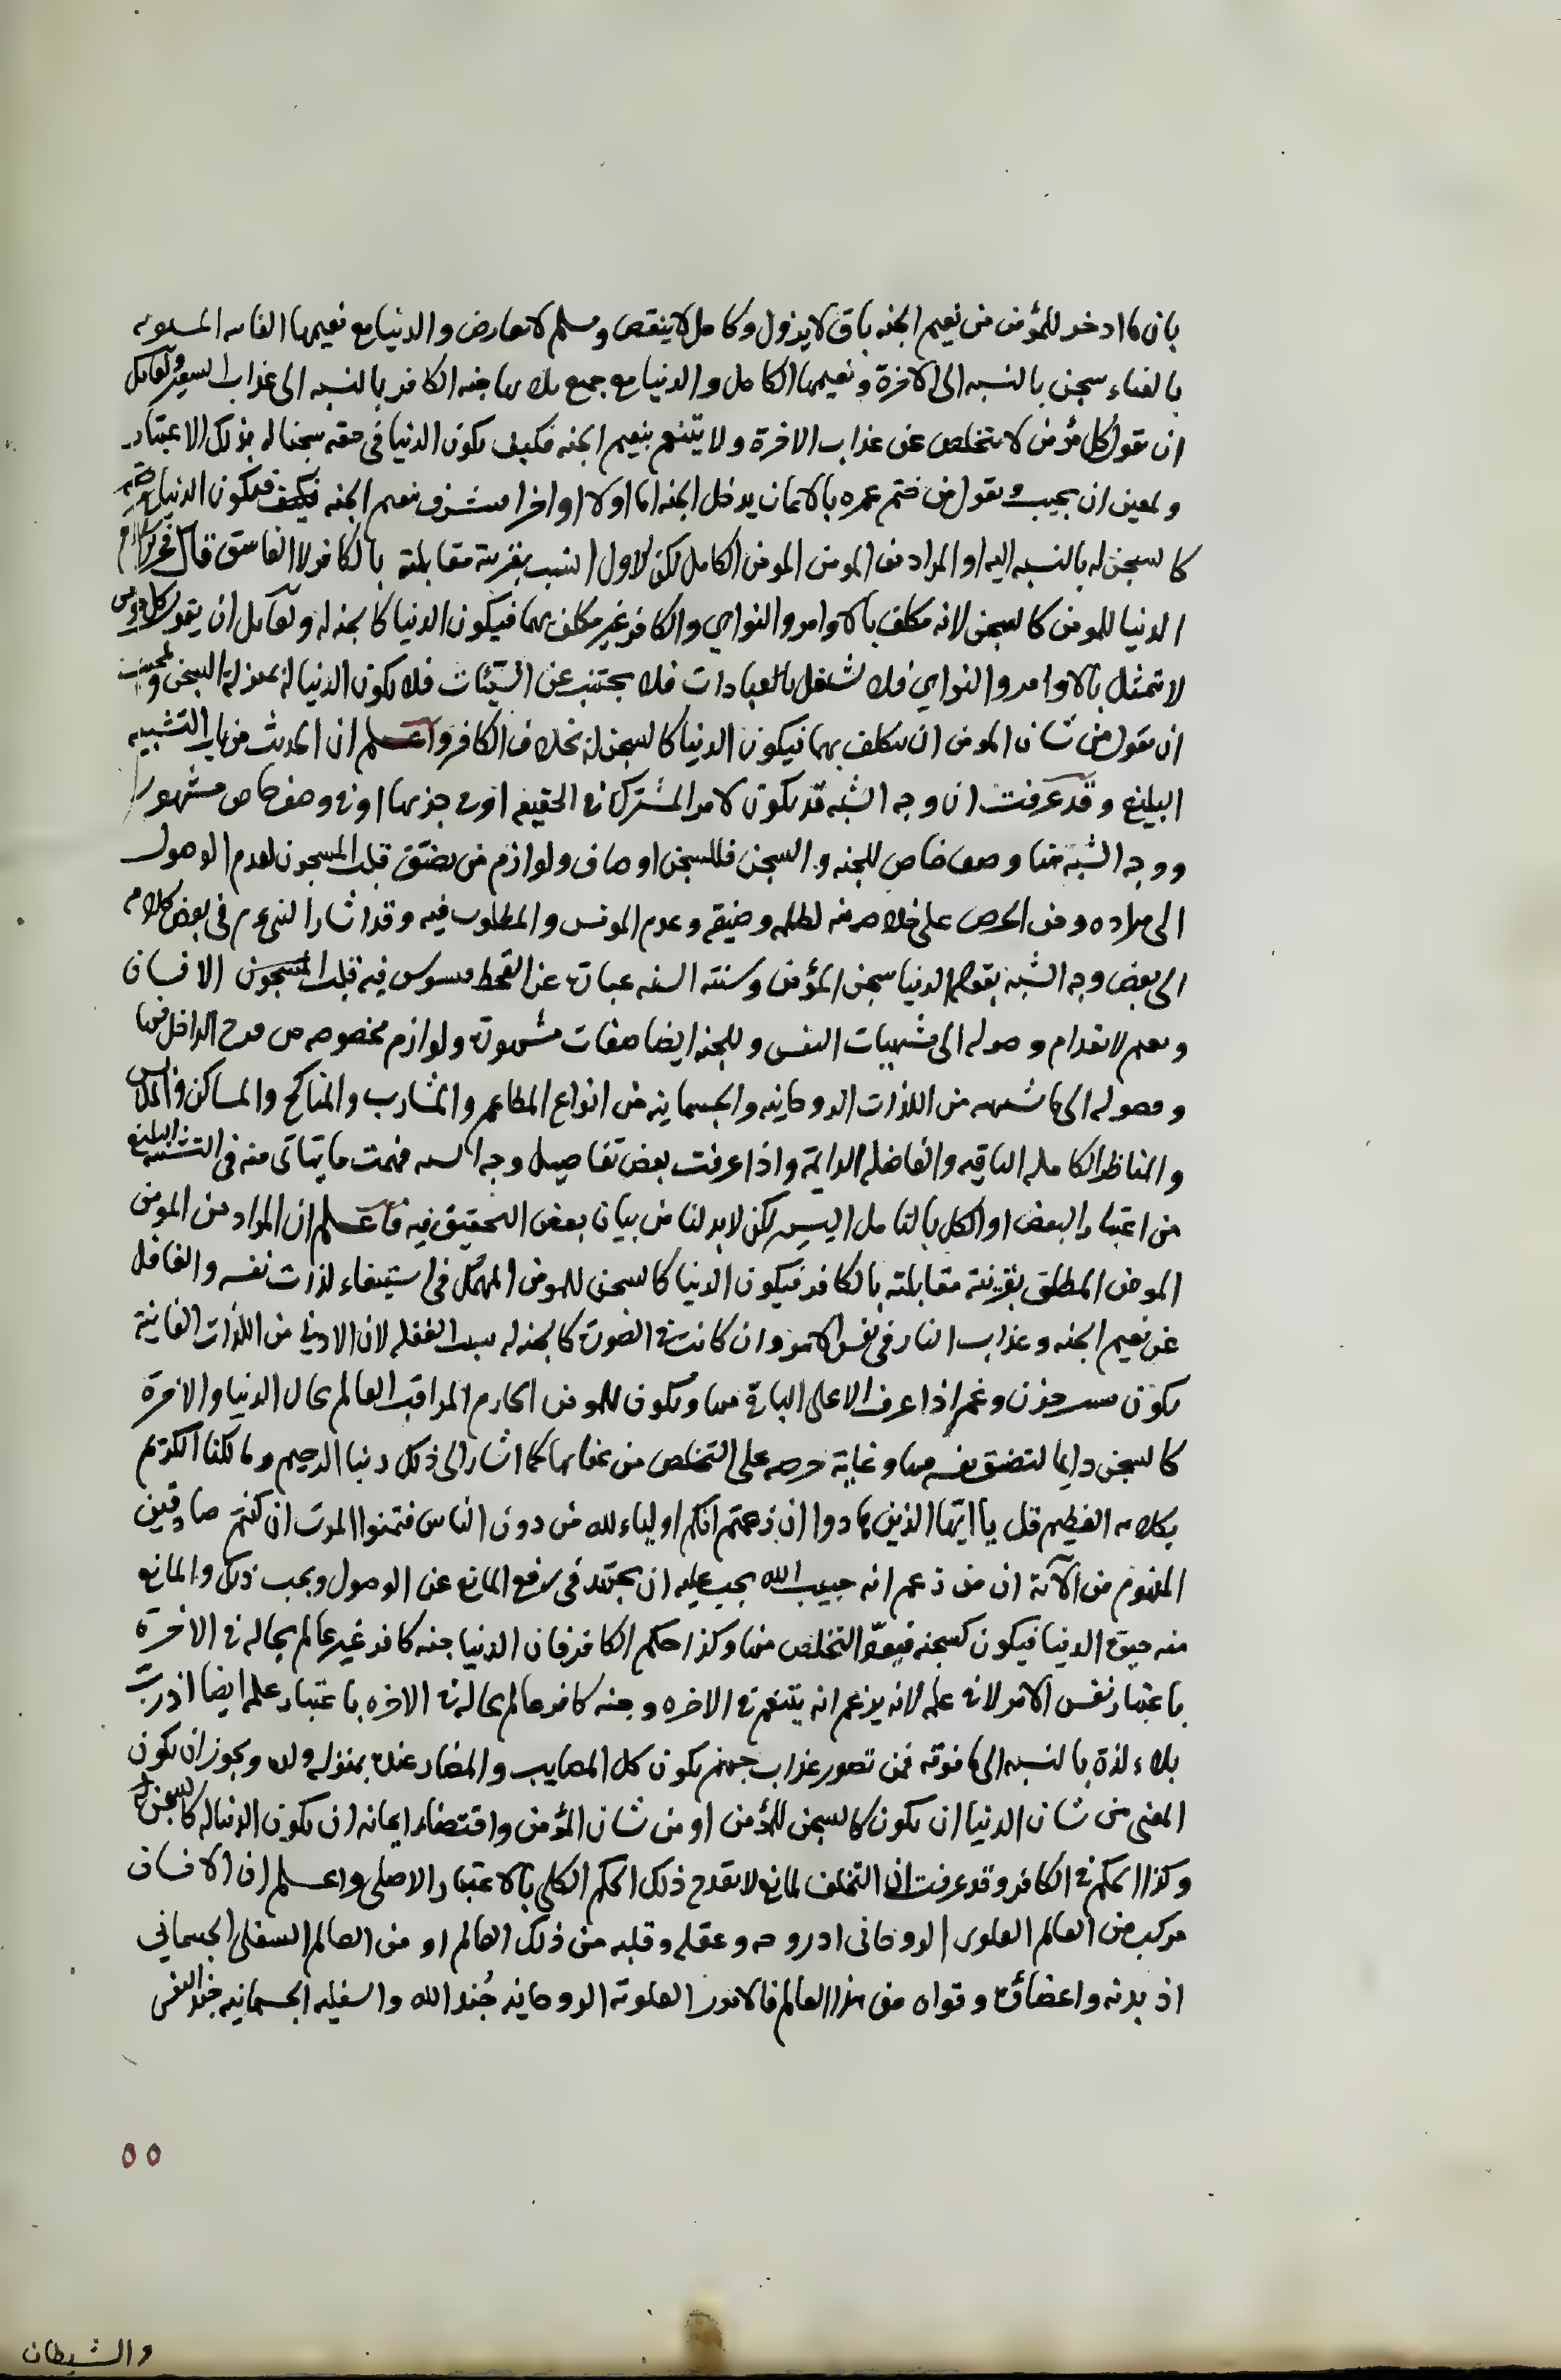 بان ما ادخر للمؤمن من نعيم الجنه باق لا يزول وكامل لا ينقص ومسلم لا تعارض والدنيا مع نعيمها الفانيه
بالفناء سجن بالنسبه الى الاخرة ونعيمها الكامل والدنيا مع جميع جنه الكافر بالنسبه الى عذاب السعير ولقايل
ان يقول كل مؤمن لا يتخلص عن عذاب الاخرة ولا يتنعم بنعيم الجنه فكيف تكون الدنيا في حقه سجنا له بذلك الاعتبار
ان يجيب ويقول من ختم عمره بالايمان يدخل الجنه اما اولا او اخرا نعيم الجنه فتكون الدنيا
كالسجن له بالنسبه اليه او المراد من المومن المومن الكامل لكن الاول انسب بقرينة مقابلته بالكافر لا الفاسق قال
الدنيا للمومن كالسجن لانه مكلف بالاوامر والنواهي والكافر غير مكلف بهما فيكون الدنيا كالجنه له ولقايل ان يقول كل مومن
لا يتمثل بالاوامر والنواهي فلا يشتغل بالعبادات فلا يجتنب عن السيئات فلا تكون الدنيا له بمنزلة السجن
ان يقول من شان المومن ان يتكلف بهما فيكون الدنيا كالسجن له بخلاف الكافر واعلم ان الحديث من باب التشبيه
البليغ وقد عرفت ان وجه الشبه قد يكون الامر المشترك في الحقيقه او في جزئها او في وصف خاص مشهور
ووجه الشبه هنا وصف خاص للجنه والسجن فللسجن اوصاف ولوازم من تضيق قلب المسجون لعدم الوصول
الى مراده ومن الحرص على خلاصه منه لظلمه وضيقه وعدم المونس والمطلوب فيه وقد اشار النبي عم في بعض كلامه
الى بعض وجه الشبه بقوله الدنيا سجن المؤمن وسنته السنه عبارة عن القحط فيه قلب المسجون الانسان
لانعدام وصوله الى مشتهيات النفس وللجنه ايضا صفات مشهورة ولوازم مخصوصه من فرح الداخل فيها
ووصوله الى ما من اللذات الروحانيه والجسمانيه من انواع المطاعم والمشارب والمناكح والمساكن والملابس
والمناظر الكامله الباقيه والفاضله الدايمة واذا عرفت بعض تفاصيل وجه الشبه فهمت ما يتاتى منه في التشبيه البليغ
من اعتبار البعض او الكل بالتامل اليسير لكن لابد لنا من بيان بعض التحقيق فيه فاعلم ان المراد من المومن
المومن المطلق بقرينة مقابلته بالكافر فيكون الدنيا كالسجن للمومن المهمك في استيفاء لذات نفسه والغافل
عن نعيم الجنه وعذاب النار في نفس الامر وان كانت في الصورة كالجنه له بسبب الغفله لان الادنى من اللذات الفانية
يكون حزن وغم اذا عرف الاعلى منها وتكون للمومن المراقب العالم بحال الدنيا والاخرة
كالسجن دايما لتضيق نفسه منها وغاية حرصه على التخلص من كما اشار الى ذلك ربنا الرحيم ومالكنا الكريم
بكلامه العظيم قل يا ايها الذين هادوا ان زعمتم انكم اولياء لله من دون الناس فتمنوا الموت ان كنتم صادقين
المفهوم من الآية ان من زعم انه حبيب الله يجب عليه ان يجتهد في رفع المانع عن الوصول ويحب ذلك والمانع
منه حيوة الدنيا فيكون كسجنه التخلص منها وكذا حكم الكافر فان الدنيا جنه كافر غير عالم بحاله في الاخرة
باعتبار نفس الامر لا في علمه لانه يزعم انه يتنعم في الاخره وجنه كافر عالم بحاله في الاخره باعتبار علمه ايضا اذ رب
بلاء لذة بالنسبه الى ما فوقه فمن تصور عذاب جهنم يكون كل المصايب والمضار عنده بمنزله ويجوز ان يكون
المعنى من شان الدنيا ان تكون كالسجن للمؤمن او من شان المؤمن واقتضاء ايمانه ان تكون الدنيا له كالسجن
وكذا الحكم في الكافر وقد عرفت ان التخلف لمانع لا يقدح ذلك الحكم الكلي بالاعتبار الاصلي واعلم ان الانسان
مركب من العالم العلوى الروحانى اذ روحه وعقله وقلبه من ذلك العالم او من العالم السفلى الجسماني
اذ بدنه واعضاؤه وقواه من هذا العالم فالامور العلوية الروحانيه جُند الله والسفليه الجسمانيه جند النفس
٥٥
والشيطان